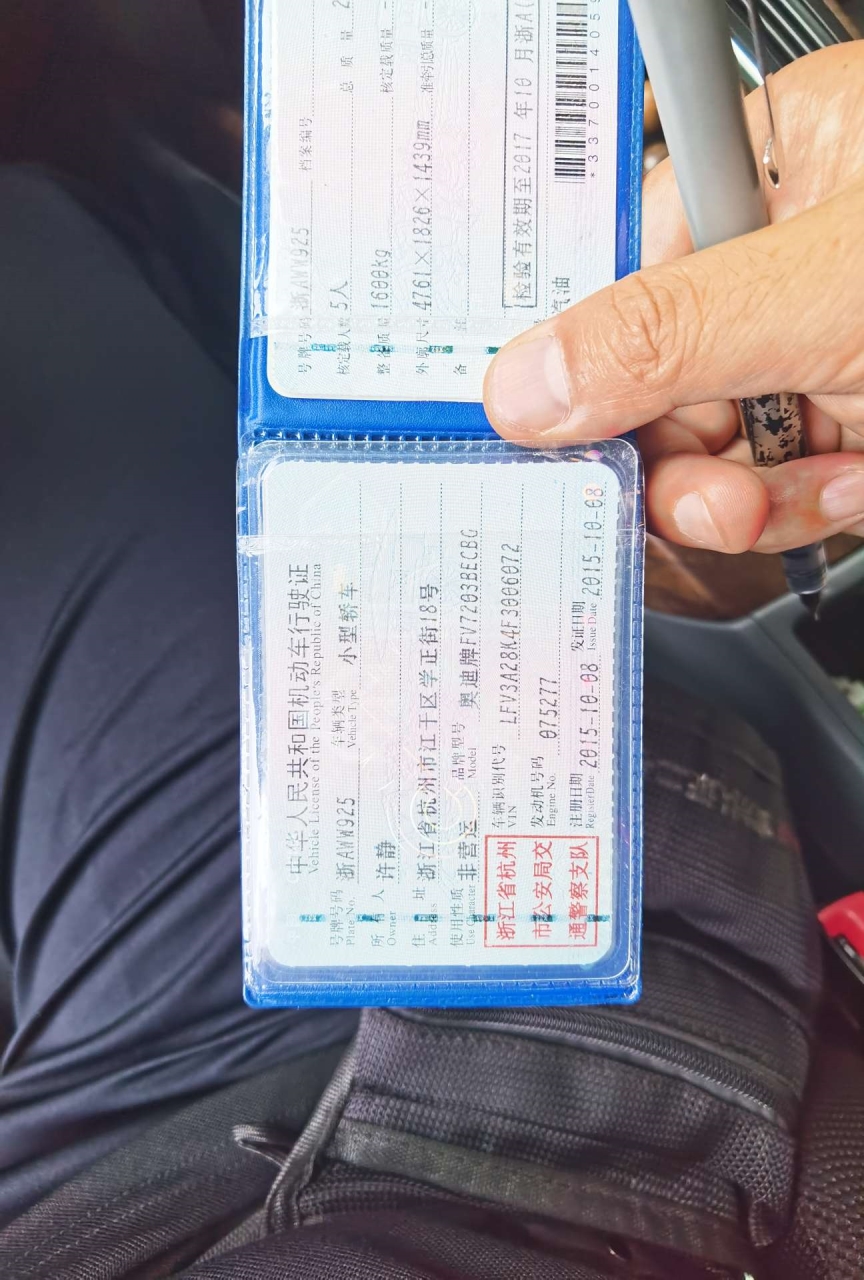 中华人民共和国机动车行驶证
Vehicle License of the People's Republic of China
号牌号码 浙AWW925 车辆类型 小型轿车
Plate No. Vehicle Type
所有人 许静
Owner
住址 浙江省杭州市江干区学正街18号
Address
使用性质 非营运 品牌型号 奥迪牌FV7203BECBG
Use Character Model
浙江省杭州
市公安局交
通警察支队
车辆识别代号 LFV3A28K4F3006072
VIN
发动机号码 075277
Engine No.
注册日期 2015-10-08 发证日期 2015-10-08
Register Date Issue Date
号牌号码 浙AWW925 档案编号
核定载人数 5人 总质量 2
整备质量 1600kg 核定载质量
外廓尺寸 4761×1826×1439mm 准牵引总质量
备注
检验有效期至2017年10月浙A(
汽油
*337001405